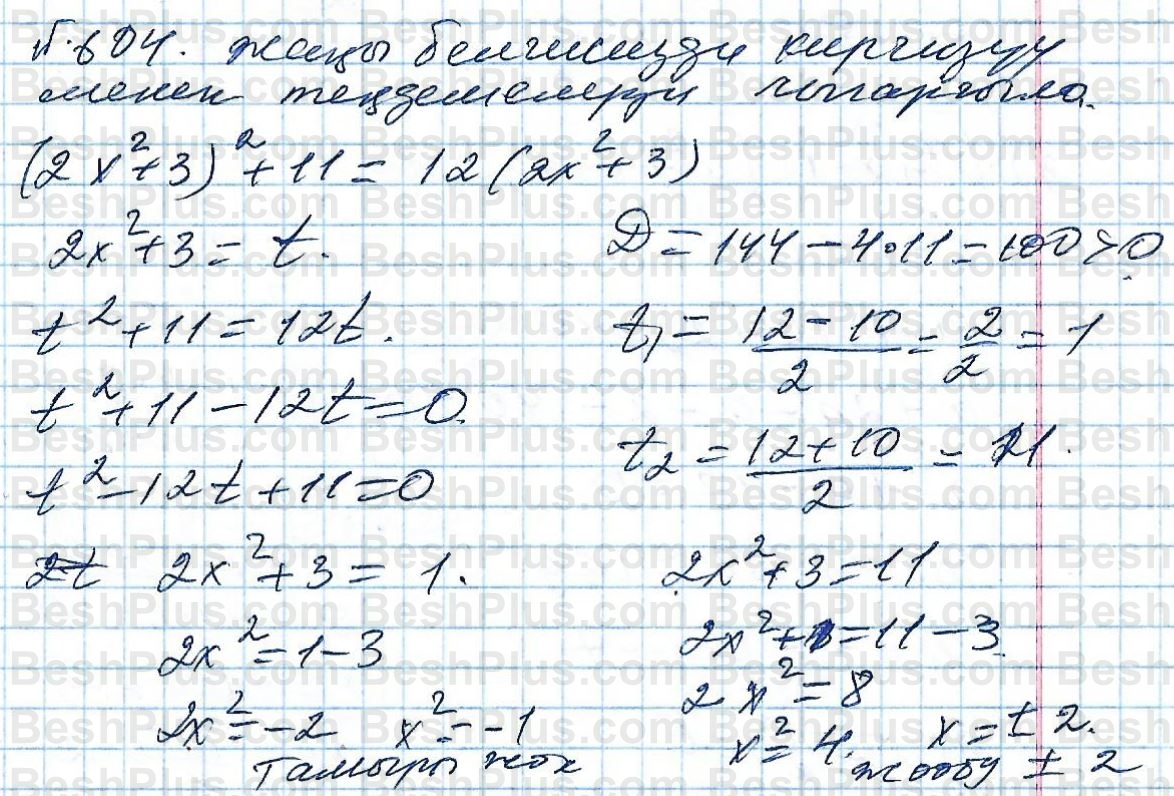 №604. жаңы белгисизди киргизүү
менен теңдемелерди чыгаргыла.
(2x²+3)²+11=12(2x²+3)
2x²+3=t.
t²+11=12t.
t²+11-12t=0.
t²-12t+11=0
D=144-4·11=100>0
t₁=(12-10)/2=2/2=1
t₂=(12+10)/2=11.
2x²+3=1.
2x²=1-3
2x²=-2 x²=-1
тамыры жок
2x²+3=11
2x²=11-3
2x²=8
x²=4. x=±2.
жообу ±2
BeshPlus.com